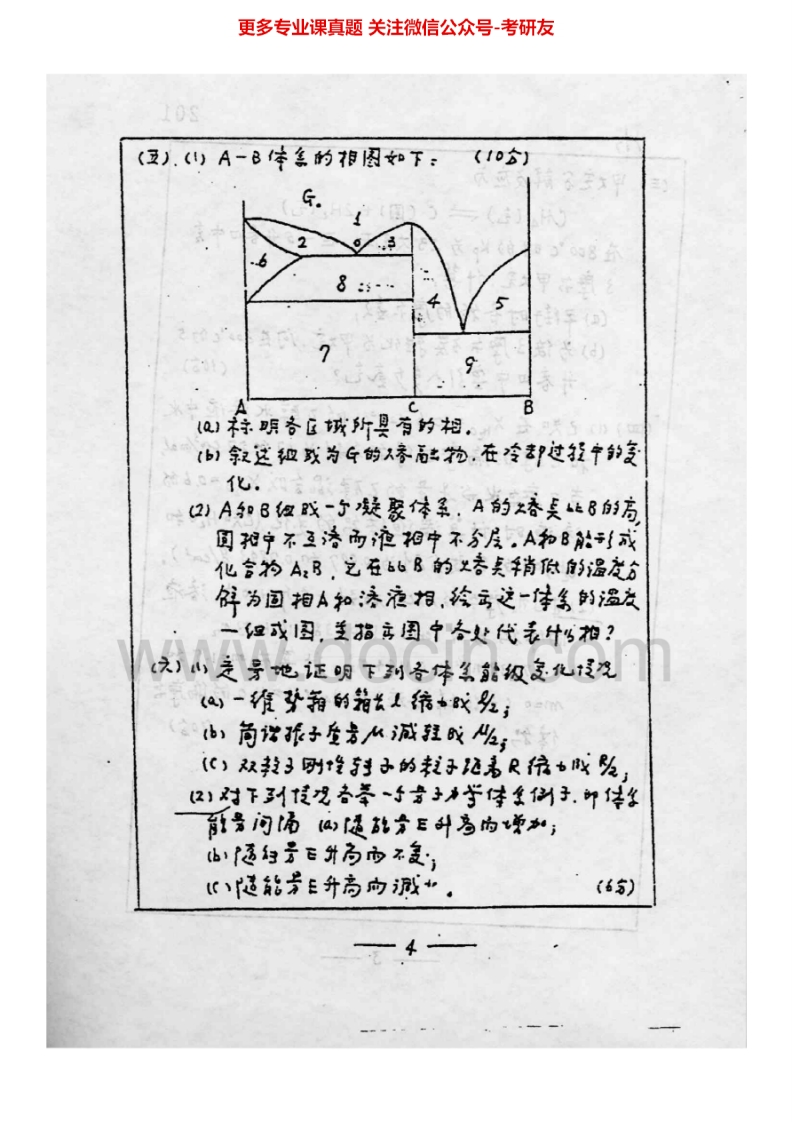 更多专业课真题 关注微信公众号-考研友
(五).(1) A-B体系的相图如下: (10分)
G.
1
2
0
3
6
8
4
5
7
9
A C B
(a) 标明各区域所具有的相.
(b) 叙述组成为G的熔融物.在冷却过程中的变
化.
(2) A和B组成一个凝聚体系. A的熔点比B的高,
固相中不互溶而液相中不分层. A和B能形成
化合物A₂B, 它在比B的熔点稍低的温度分
解为固相A和溶液相,绘出这一体系的温度
一组成图,并指出图中各处代表什么相?
www.docin.com
(六)(1) 定号地证明下列各体系能级变化情况
(a) 一维势箱的箱长l缩小成l/2;
(b) 简谐振子质量M减轻成M/2;
(c) 双粒子刚性转子的粒子距离R缩小成R/2;
(2) 对下列情况各举一个量子力学体系例子.即体系
能量间隔 (a) 随能量E升高而增加;
(b) 随能量E升高而不变;
(c) 随能量E升高而减小. (6分)
4